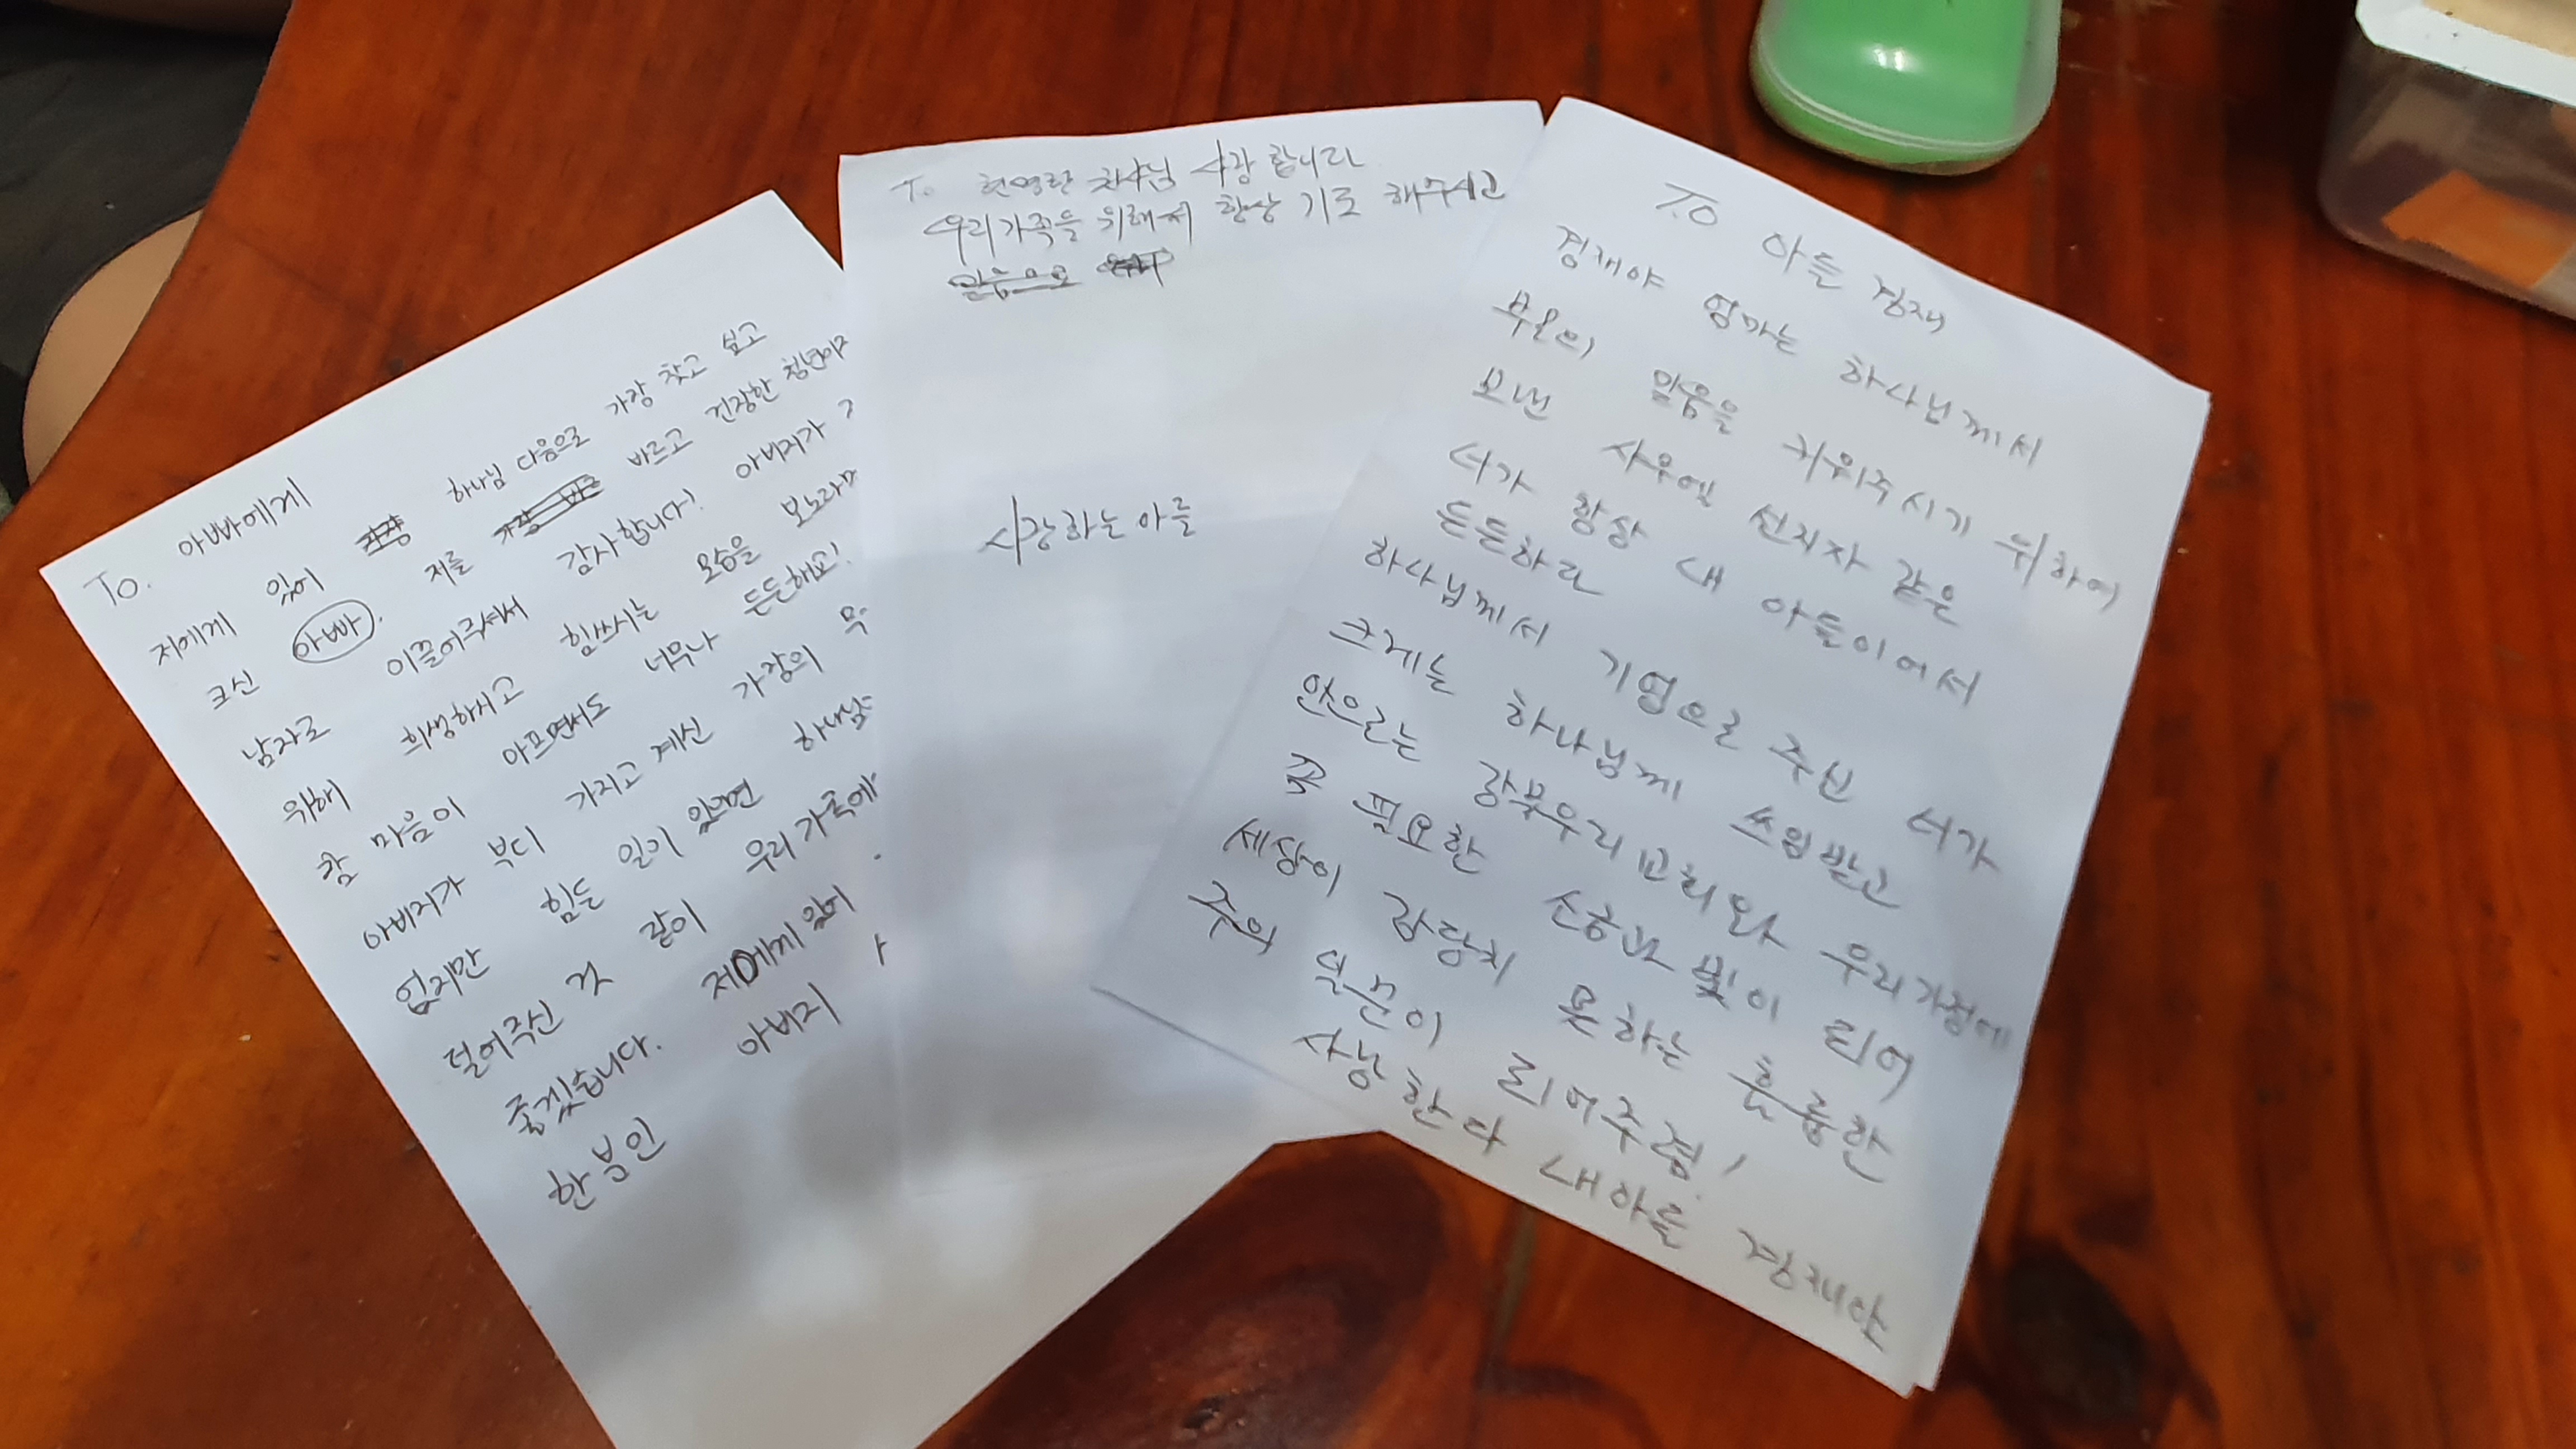 To. 아빠에게
저에게 있어 하나님 다음으로 가장 찾고 싶고
크신 아빠. 저를 바르고 건장한 청년이자
남자로 이끌어주셔서 감사합니다! 아버지가
위해 희생하시고 힘쓰시는 모습을 보노라며
참 마음이 아프면서도 너무나 든든해요!
아버지가 부디 가지고 계신 가장의
없지만 힘든 일이 있으면 하나님
덜어주신 것 같이 우리가족에
좋겠습니다. 저에게 있어
한분인 아버지
To 집사님 사랑합니다
우리가족을 위해서 항상 기도 해주시고
믿음으로
사랑하는 아들
T.O 아들 경재
경재야 엄마는 하나님께서
부모의 믿음을 키워주시기 위하여
보낸 사무엘 선지자 같은
너가 항상 내 아들이어서
든든하다
하나님께서 기업으로 주신 너가
크게는 하나님께 쓰임받고
안으로는 우리교회와 우리가정에
꼭 필요한 소금과 빛이 되어
세상이 감당치 못하는 훌륭한
주의 일꾼이 되어주렴!
사랑한다 내아들 경재야